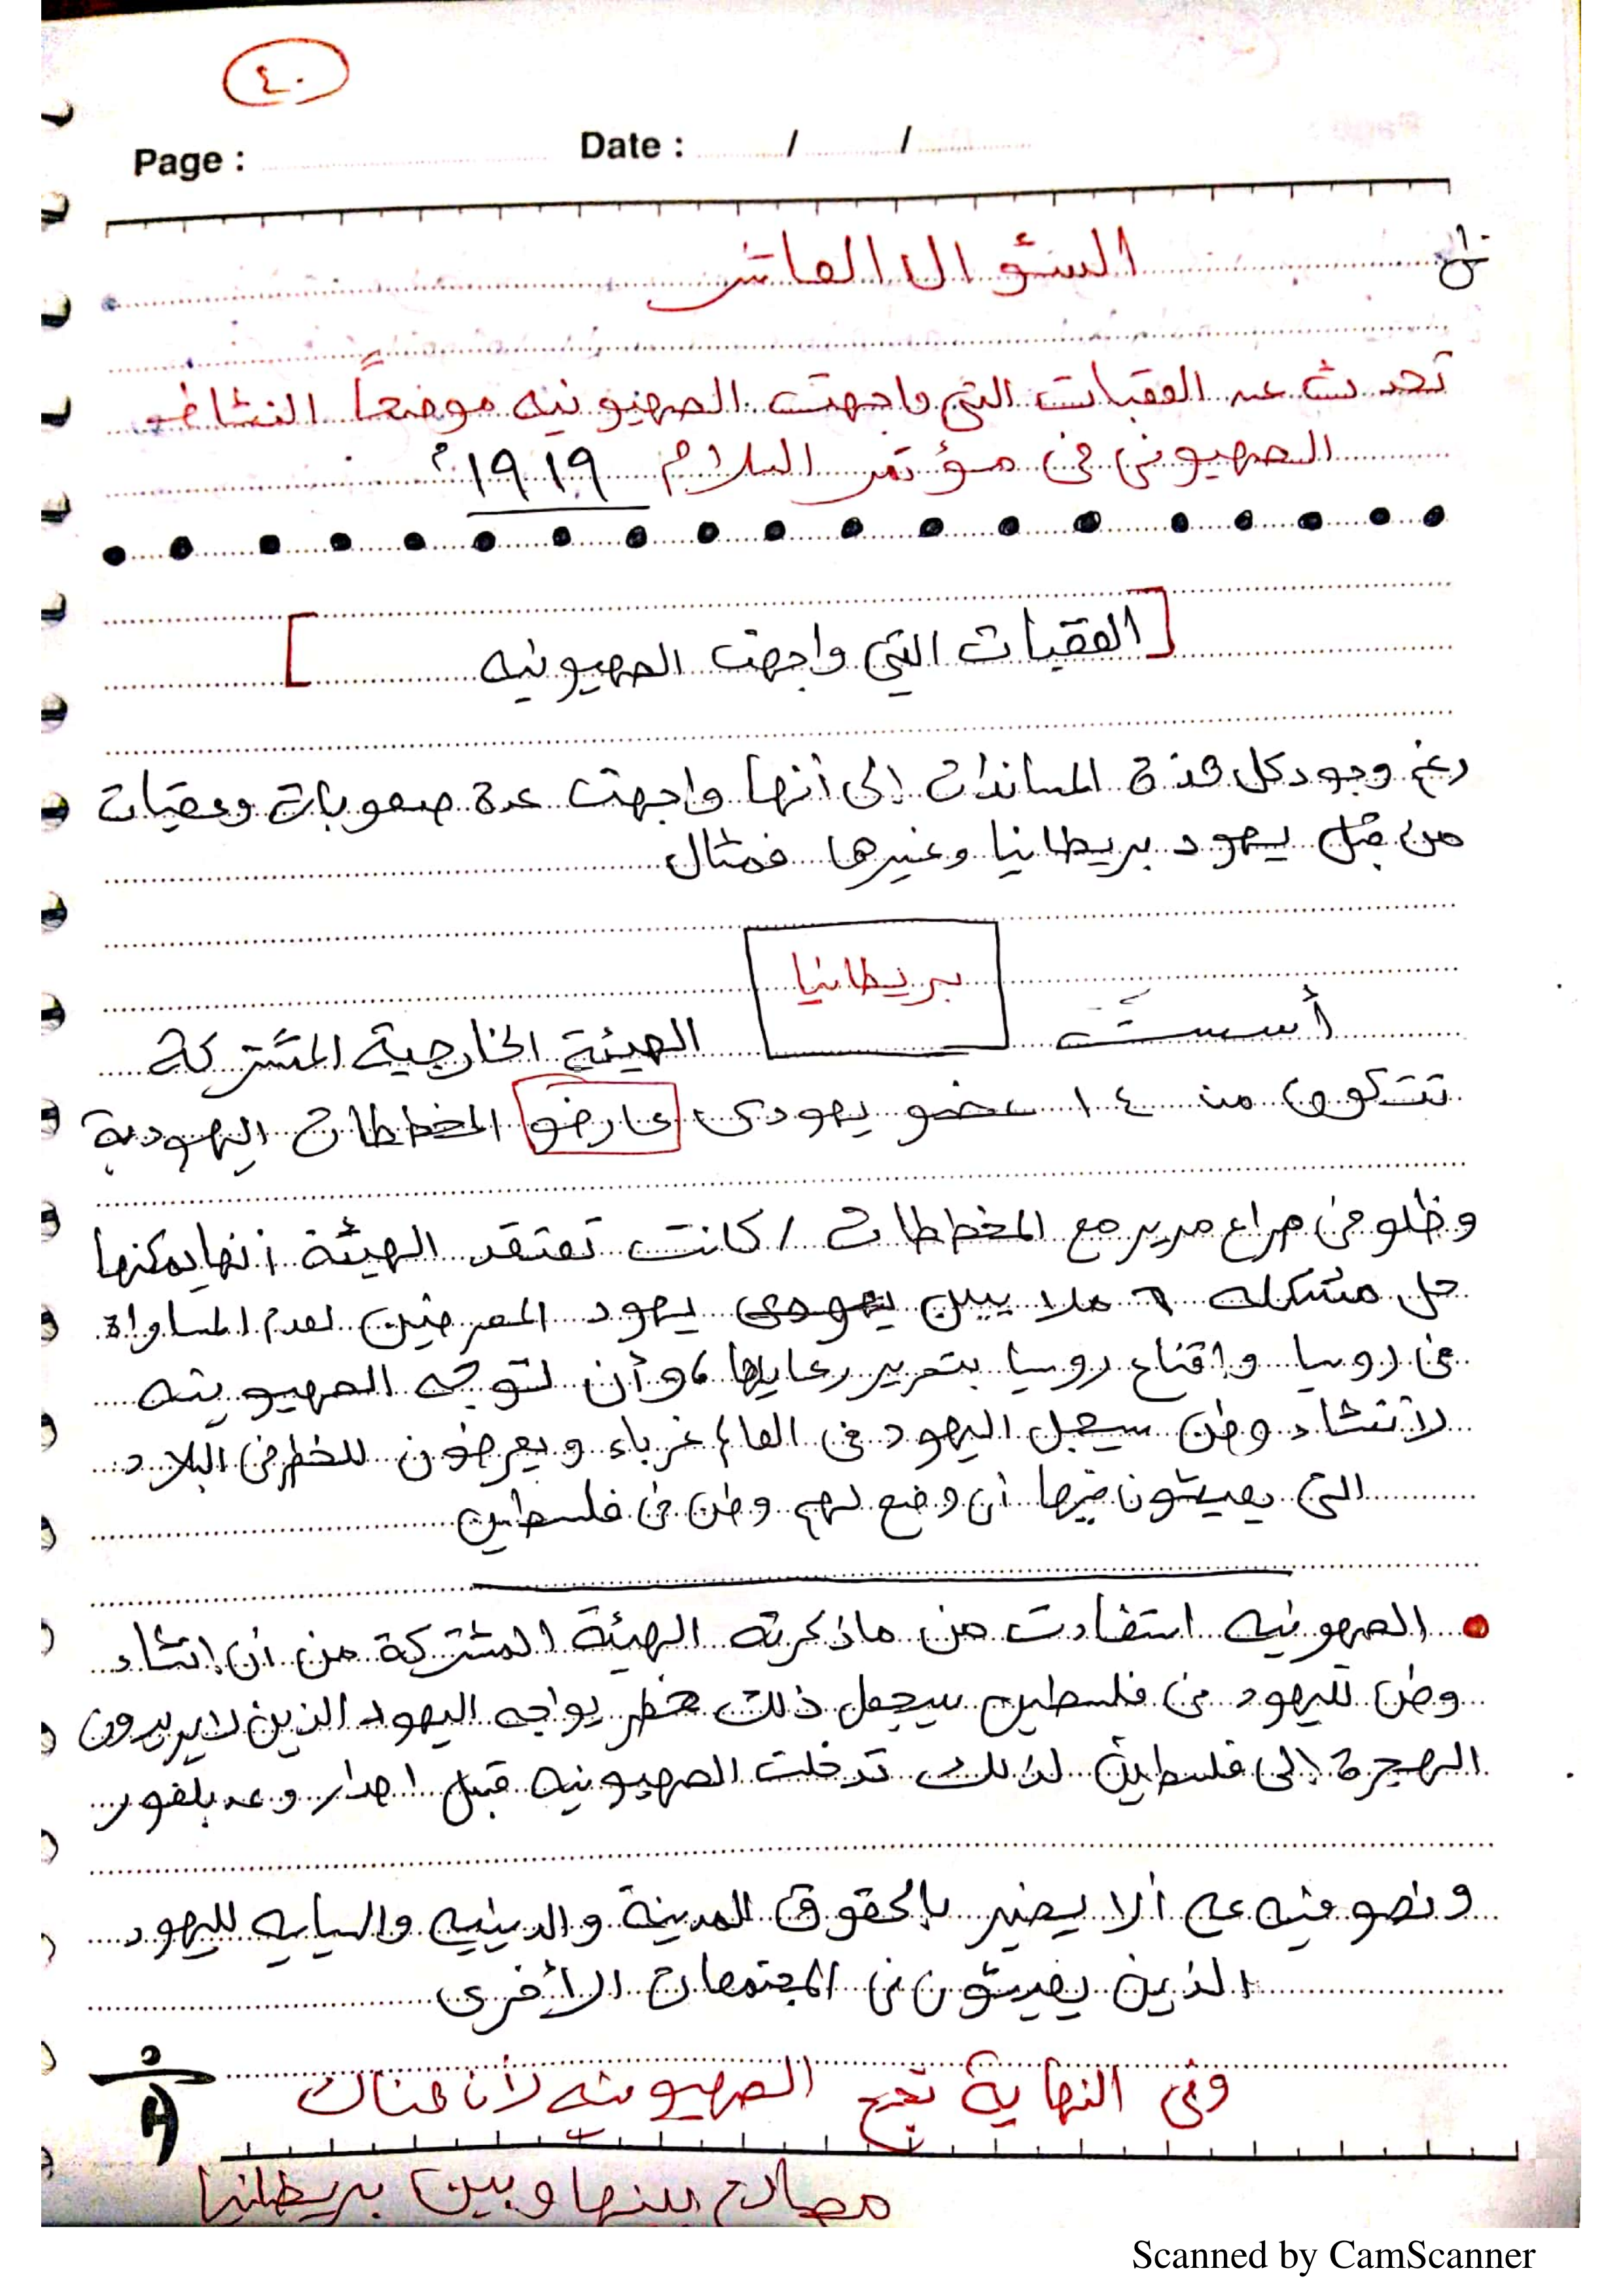 ٤٠
Page : Date : / /
س١٠
السؤال العاشر
تحدث عن العقبات التي واجهت الصهيونيه موضحاً النشاط
الصهيوني في مؤتمر السلام ١٩١٩م
[العقبات التي واجهت الصهيونيه]
رغم وجود كل هذة المساندات إلى أنها واجهت عدة صعوبات وعقبات
من قبل يهود بريطانيا وغيرها فمثال
بريطانيا
أسست الهيئة الخارجية المشتركة
تتكون من ١٤ عضو يهودى عارضو المخططات اليهودية
وظلو فى صراع مرير مع المخططات / كانت تعتقد الهيئة أنها يمكنها
حل مشكله ٦ ملايين يهود المعرضين لعدم المساواة
فى روسيا واقناع روسيا بتحرير رعاياها، وأن لتوجه الصهيونيه
لانشاء وطن سيجعل اليهود فى العالم غرباء ويعرضون للخطر فى البلاد
التى يعيشون فيها أن وضع لهم وطن فى فلسطين
الصهونيه استفادت من ماذكرته الهيئة المشتركة من أن إنشاء
وطن لليهود فى فلسطين سيجعل ذلك خطر يواجه اليهود الذين لايريدون
الهجرة إلى فلسطين لذلك تدخلت الصهيونيه قبل اصدار وعد بلفور
ونصو فيه على ألا يضير بالحقوق المدنية والدينيه والسياسيه لليهود
الذين يعيشون فى المجتمعات الأخرى
وفى النهاية نجح الصهيونيه لأن هناك
مصالح بينها وبين بريطانيا
Scanned by CamScanner